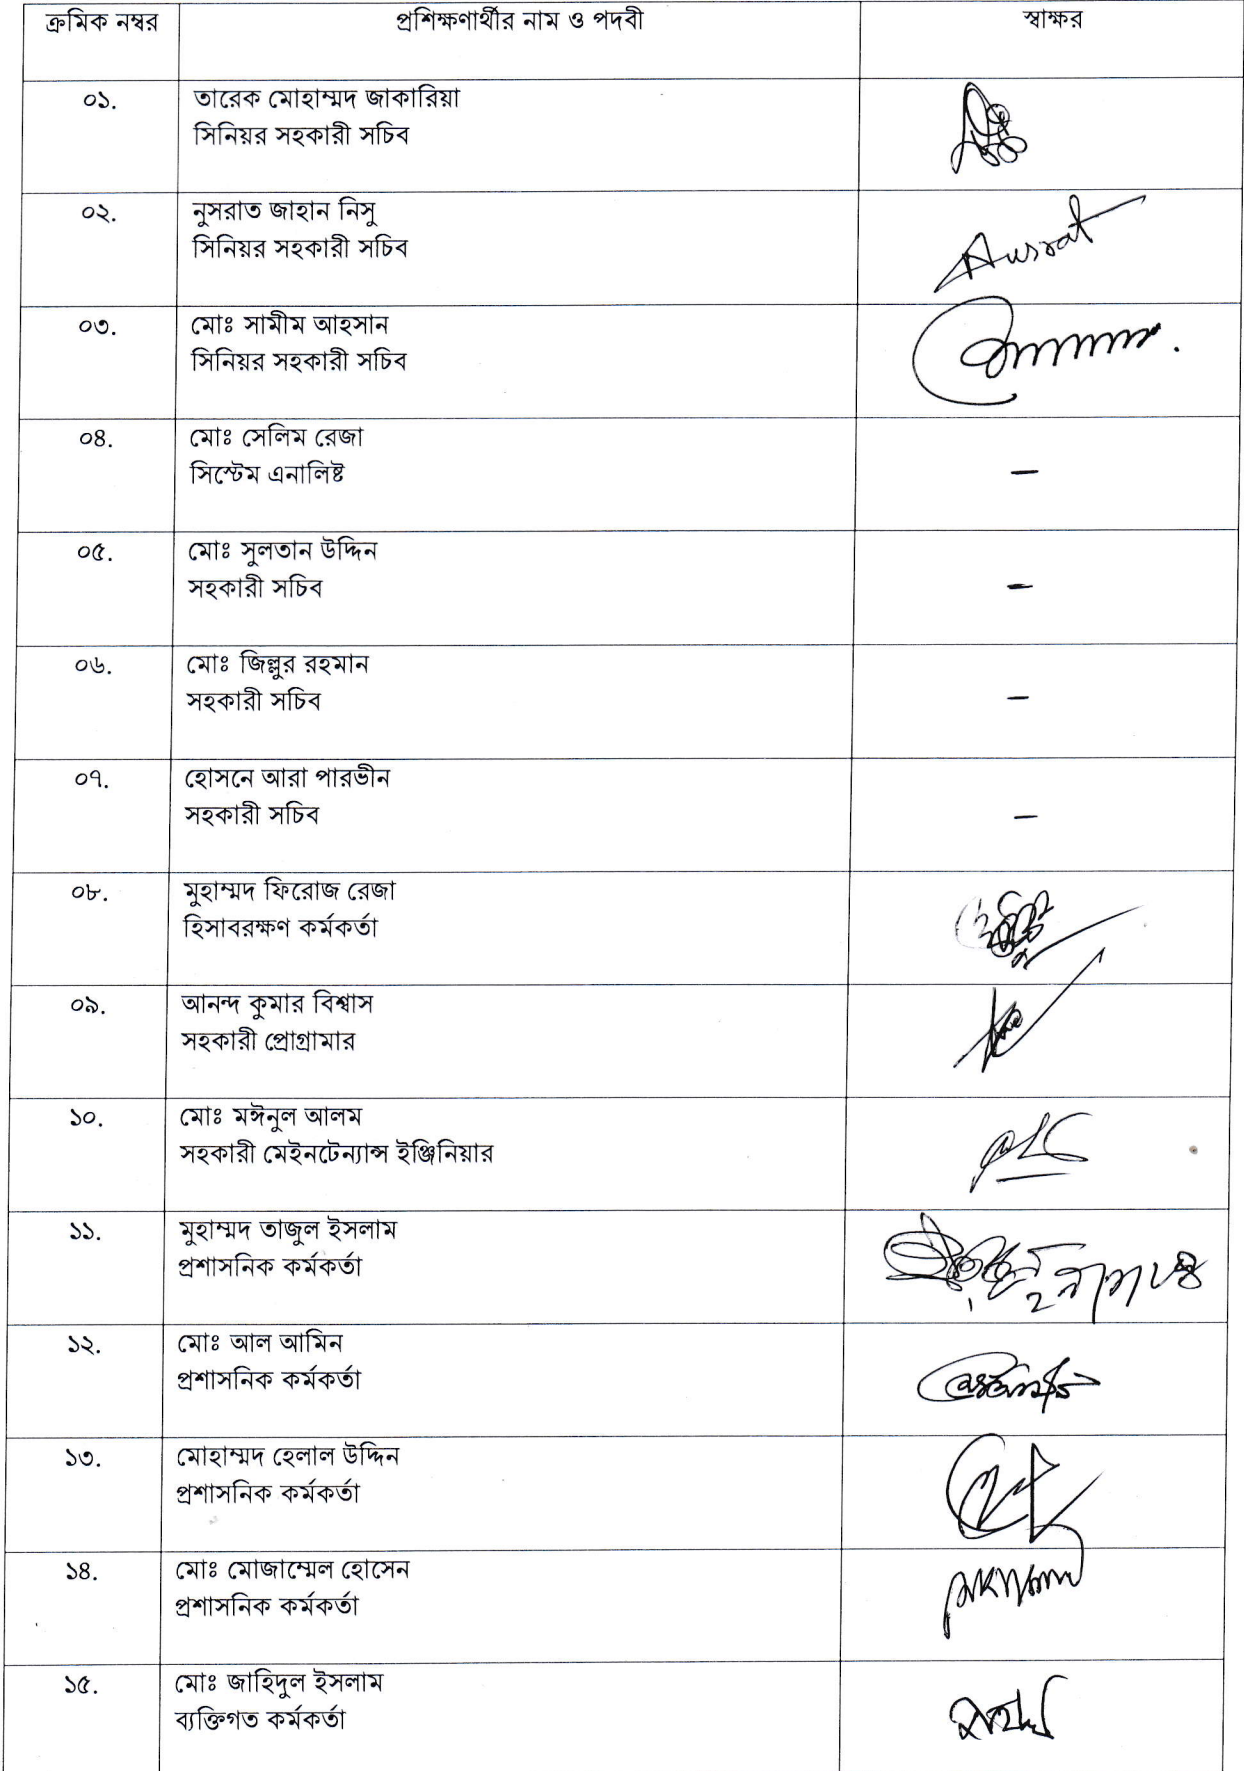 ক্রমিক নম্বর	প্রশিক্ষণার্থীর নাম ও পদবী	স্বাক্ষর
০১.	তারেক মোহাম্মদ জাকারিয়া
সিনিয়র সহকারী সচিব
০২.	নুসরাত জাহান নিসু
সিনিয়র সহকারী সচিব	Nusrat
০৩.	মোঃ সামীম আহসান
সিনিয়র সহকারী সচিব
০৪.	মোঃ সেলিম রেজা
সিস্টেম এনালিষ্ট	–
০৫.	মোঃ সুলতান উদ্দিন
সহকারী সচিব	–
০৬.	মোঃ জিল্লুর রহমান
সহকারী সচিব	–
০৭.	হোসনে আরা পারভীন
সহকারী সচিব	–
০৮.	মুহাম্মদ ফিরোজ রেজা
হিসাবরক্ষণ কর্মকর্তা
০৯.	আনন্দ কুমার বিশ্বাস
সহকারী প্রোগ্রামার
১০.	মোঃ মঈনুল আলম
সহকারী মেইনটেন্যান্স ইঞ্জিনিয়ার
১১.	মুহাম্মদ তাজুল ইসলাম
প্রশাসনিক কর্মকর্তা
১২.	মোঃ আল আমিন
প্রশাসনিক কর্মকর্তা
১৩.	মোহাম্মদ হেলাল উদ্দিন
প্রশাসনিক কর্মকর্তা
১৪.	মোঃ মোজাম্মেল হোসেন
প্রশাসনিক কর্মকর্তা
১৫.	মোঃ জাহিদুল ইসলাম
ব্যক্তিগত কর্মকর্তা